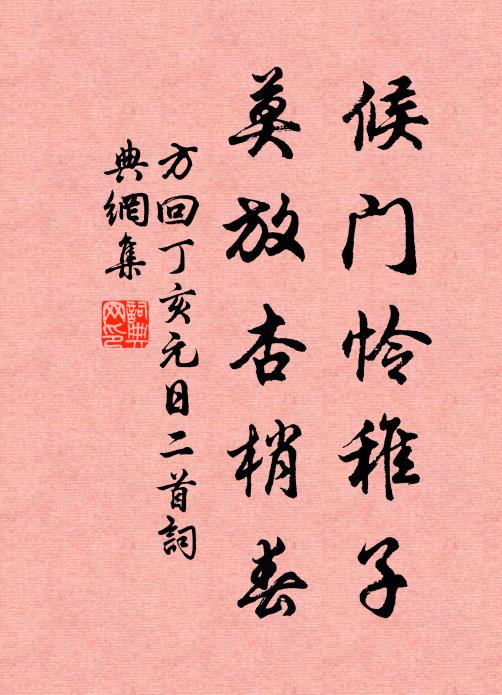 候门怜稚子
莫放杏梢春
方回丁亥元日二首詞
典網集
詞典网印